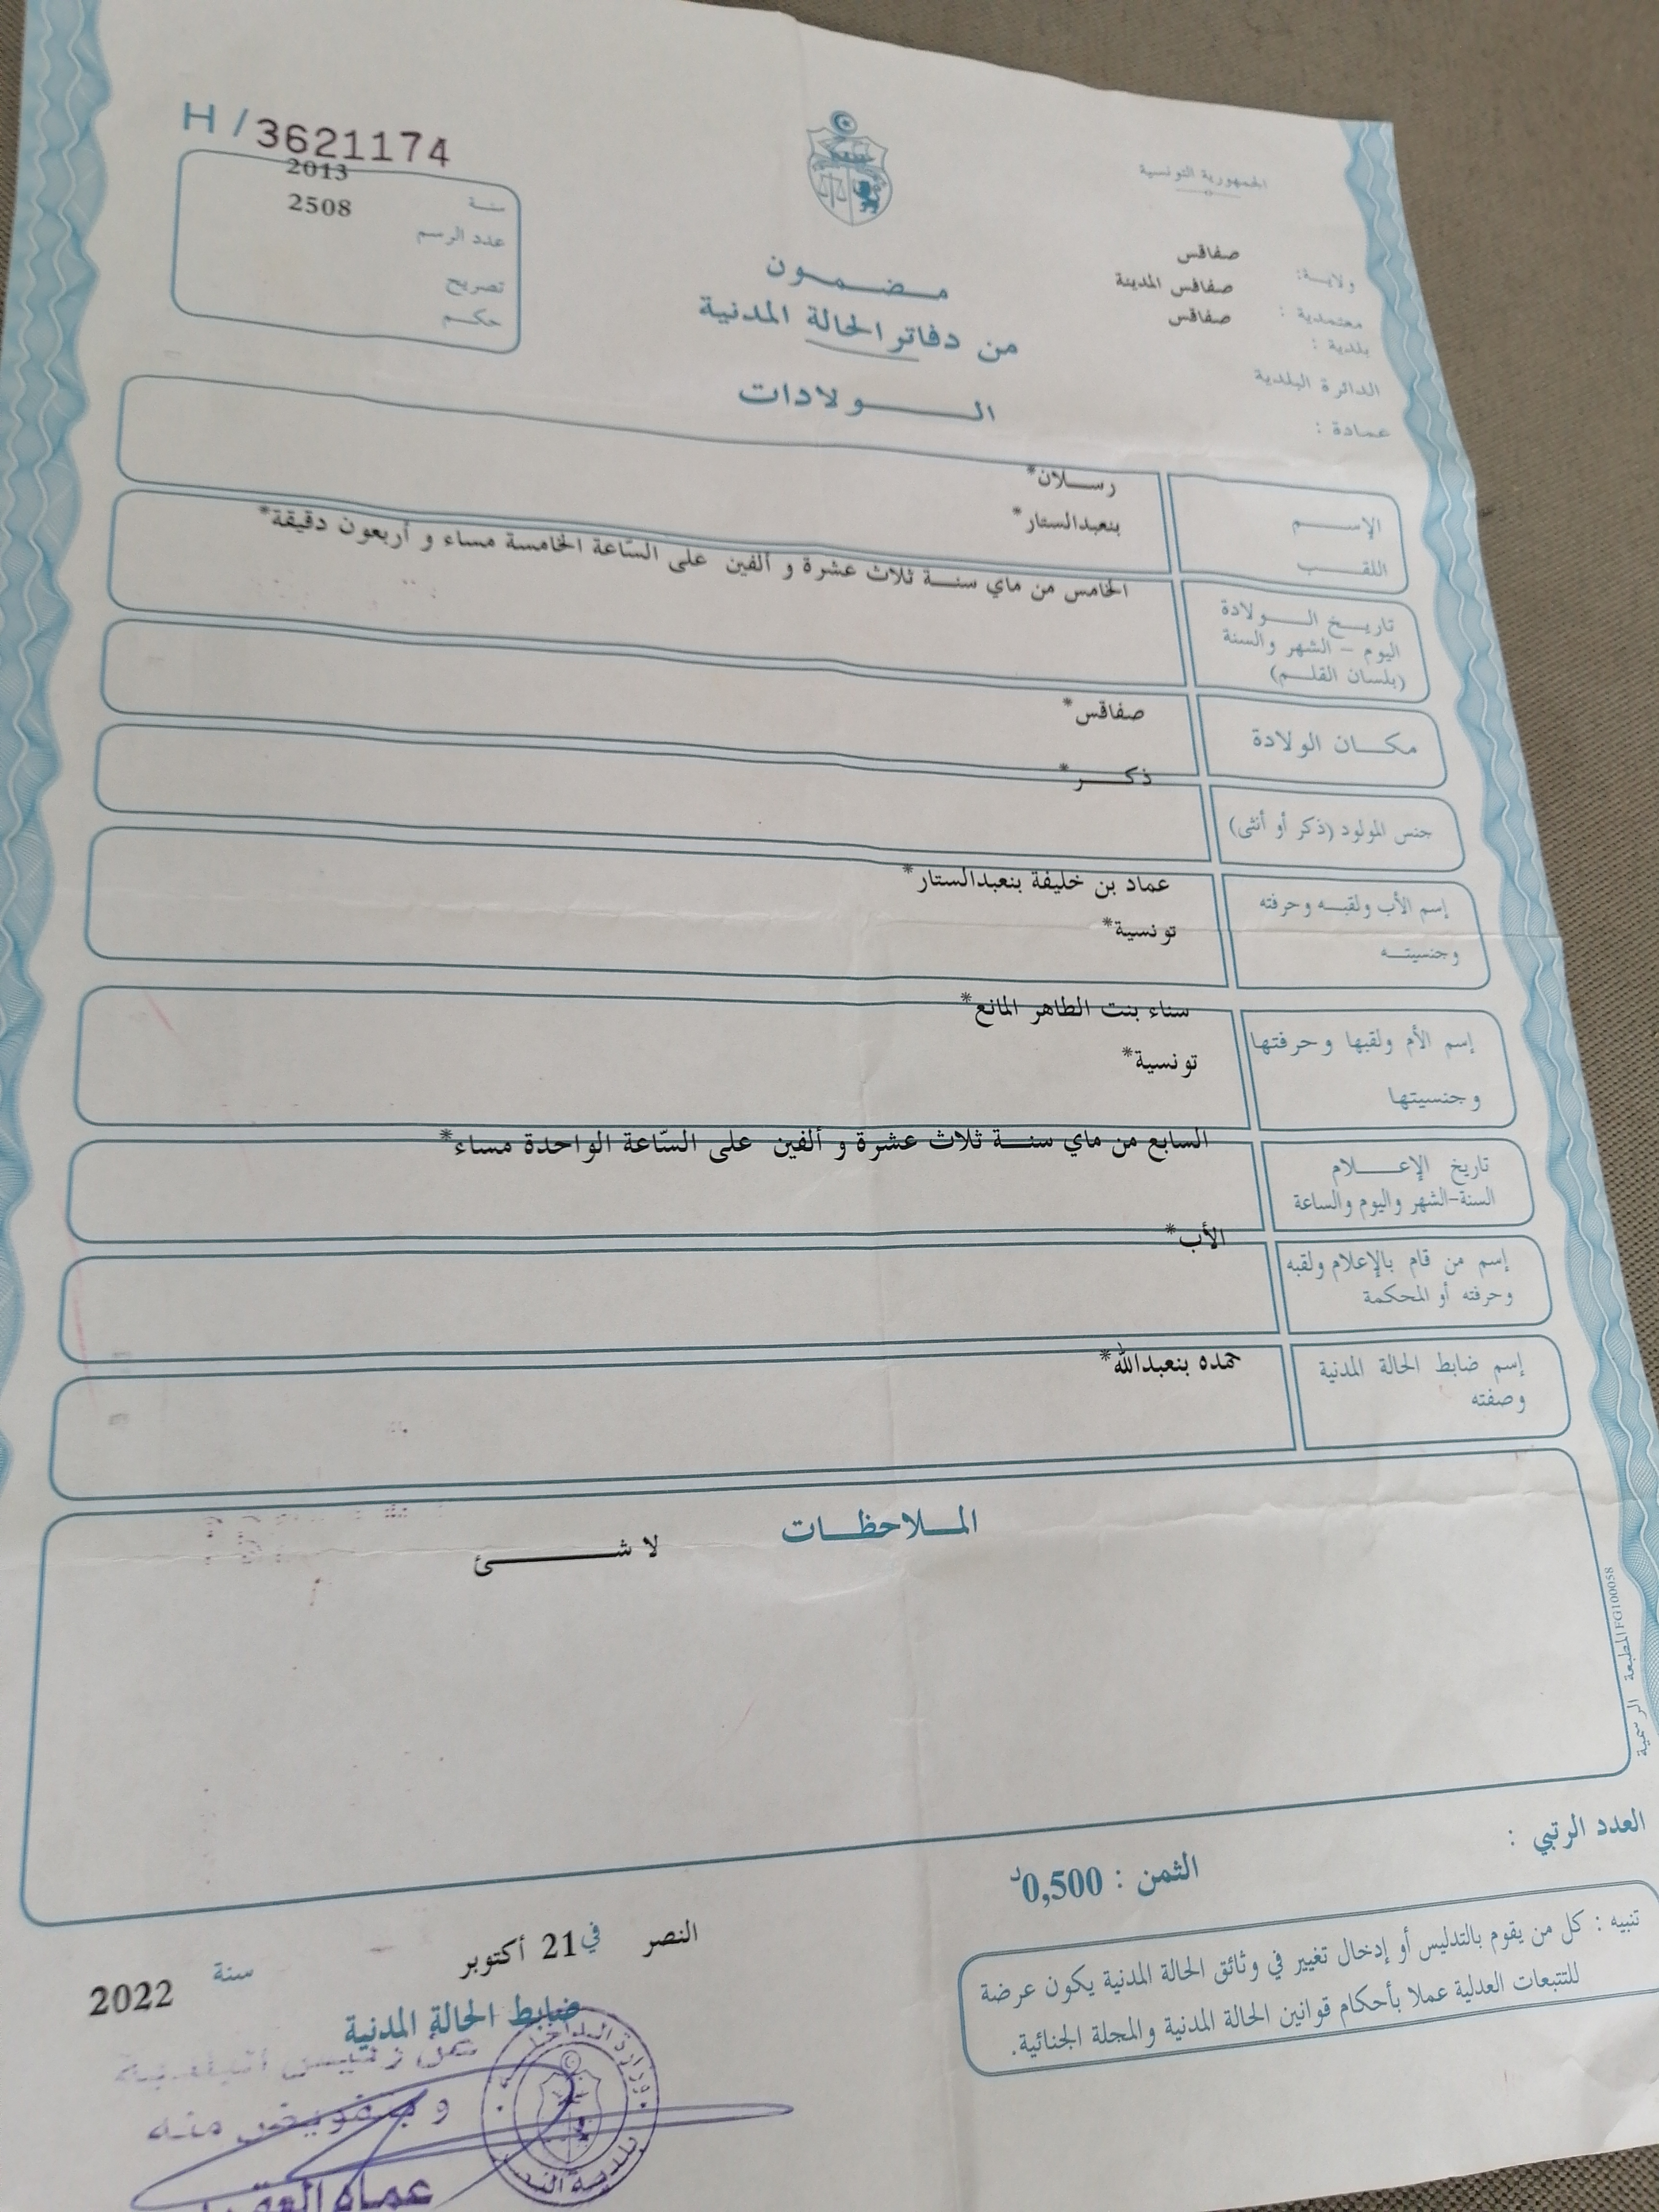 H / 3621174
الجمهورية التونسية
ولاية: صفاقس
معتمدية : صفاقس المدينة
بلدية : صفاقس
الدائرة البلدية
عمادة :
سنة 2013
عدد الرسم 2508
تصريح
حكم
مضمون
من دفاتر الحالة المدنية
الولادات
الإسم رسلان*
اللقب بنعبدالستار*
تاريخ الولادة
اليوم - الشهر والسنة
(بلسان القلم)
الخامس من ماي سنة ثلاث عشرة و ألفين على السّاعة الخامسة مساء و أربعون دقيقة*
مكان الولادة صفاقس*
جنس المولود (ذكر أو أنثى) ذكر*
إسم الأب ولقبه وحرفته عماد بن خليفة بنعبدالستار*
وجنسيته تونسية*
إسم الأم ولقبها وحرفتها سناء بنت الطاهر المانع*
وجنسيتها تونسية*
تاريخ الإعلام
السنة-الشهر واليوم والساعة
السابع من ماي سنة ثلاث عشرة و ألفين على السّاعة الواحدة مساء*
إسم من قام بالإعلام ولقبه
وحرفته أو المحكمة
الأب*
إسم ضابط الحالة المدنية
وصفته
حمده بنعبدالله*
الملاحظات
لا شئ
المطبعة الرسمية FG100058
العدد الرتبي :
الثمن : 0,500د
تنبيه : كل من يقوم بالتدليس أو إدخال تغيير في وثائق الحالة المدنية يكون عرضة
للتتبعات العدلية عملا بأحكام قوانين الحالة المدنية والمجلة الجنائية.
النصر في 21 أكتوبر سنة 2022
ضابط الحالة المدنية
عن رئيس البلدية
و بتفويض منه
عماد
وزارة الداخلية
بلدية